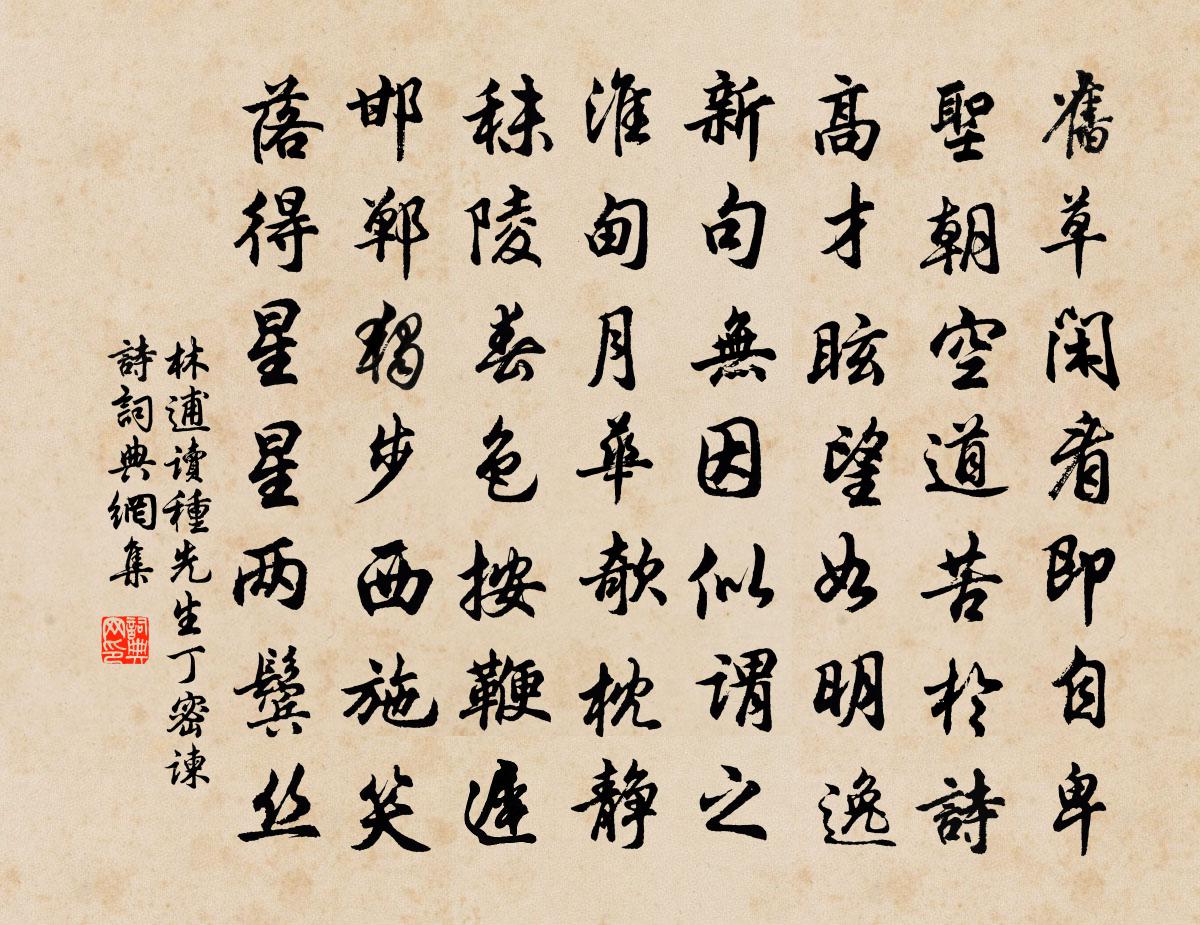 舊草閑看即自卑
聖朝空道苦於詩
高才眩望如明逸
新句無因似謂之
淮甸月華欹枕靜
秣陵春色按鞭遲
邯鄲獨步西施笑
落得星星两鬢丝
林逋读種先生丁密諫
詩詞典網集
詞典网印